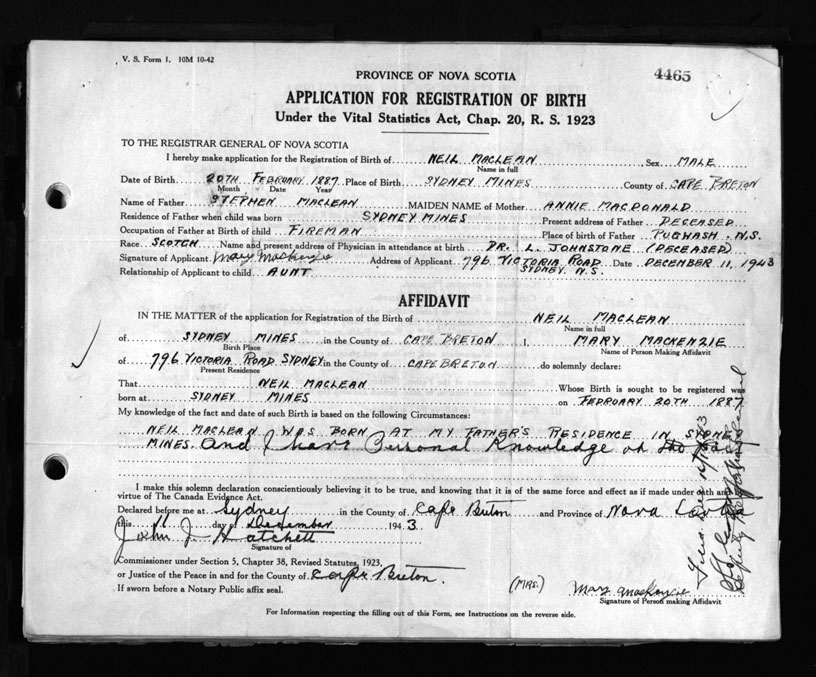 V. S. Form 1. 10M 10-42
4465
PROVINCE OF NOVA SCOTIA
APPLICATION FOR REGISTRATION OF BIRTH
Under the Vital Statistics Act, Chap. 20, R. S. 1923
TO THE REGISTRAR GENERAL OF NOVA SCOTIA
I hereby make application for the Registration of Birth of NEIL MACLEAN Sex MALE
Name in full
Date of Birth 20TH FEBRUARY 1887 Place of Birth SYDNEY MINES County of CAPE BRETON
Month Date Year
Name of Father STEPHEN MACLEAN MAIDEN NAME of Mother ANNIE MACDONALD
Residence of Father when child was born SYDNEY MINES Present address of Father DECEASED
Occupation of Father at Birth of child FIREMAN Place of birth of Father PUGWASH - N.S.
Race SCOTCH Name and present address of Physician in attendance at birth DR. L. JOHNSTONE (DECEASED)
Signature of Applicant Mary Mackenzie Address of Applicant 796 VICTORIA ROAD SYDNEY N.S. Date DECEMBER 11, 1943
Relationship of Applicant to child AUNT
AFFIDAVIT
IN THE MATTER of the application for Registration of the Birth of NEIL MACLEAN
Name in full
of SYDNEY MINES in the County of CAPE BRETON I, MARY MACKENZIE
Birth Place Name of Person Making Affidavit
of 796 VICTORIA ROAD SYDNEY in the County of CAPE BRETON do solemnly declare:
Present Residence
That NEIL MACLEAN Whose Birth is sought to be registered was
born at SYDNEY MINES on FEBRUARY 20TH 1887
My knowledge of the fact and date of such Birth is based on the following Circumstances:
NEIL MACLEAN WAS BORN AT MY FATHER'S RESIDENCE IN SYDNEY
MINES. and I have Personal Knowledge of the
I make this solemn declaration conscientiously believing it to be true, and knowing that it is of the same force and effect as if made under oath and by
virtue of The Canada Evidence Act.
Declared before me at Sydney in the County of Cape Breton and Province of Nova Scotia
this 11 day of December 1943.
John J. Hatchett
Signature of
Commissioner under Section 5, Chapter 38, Revised Statutes, 1923,
or Justice of the Peace in and for the County of Cape Breton.
If sworn before a Notary Public affix seal.
(MRS.) Mary Mackenzie
Signature of Person making Affidavit
For Information respecting the filling out of this Form, see Instructions on the reverse side.